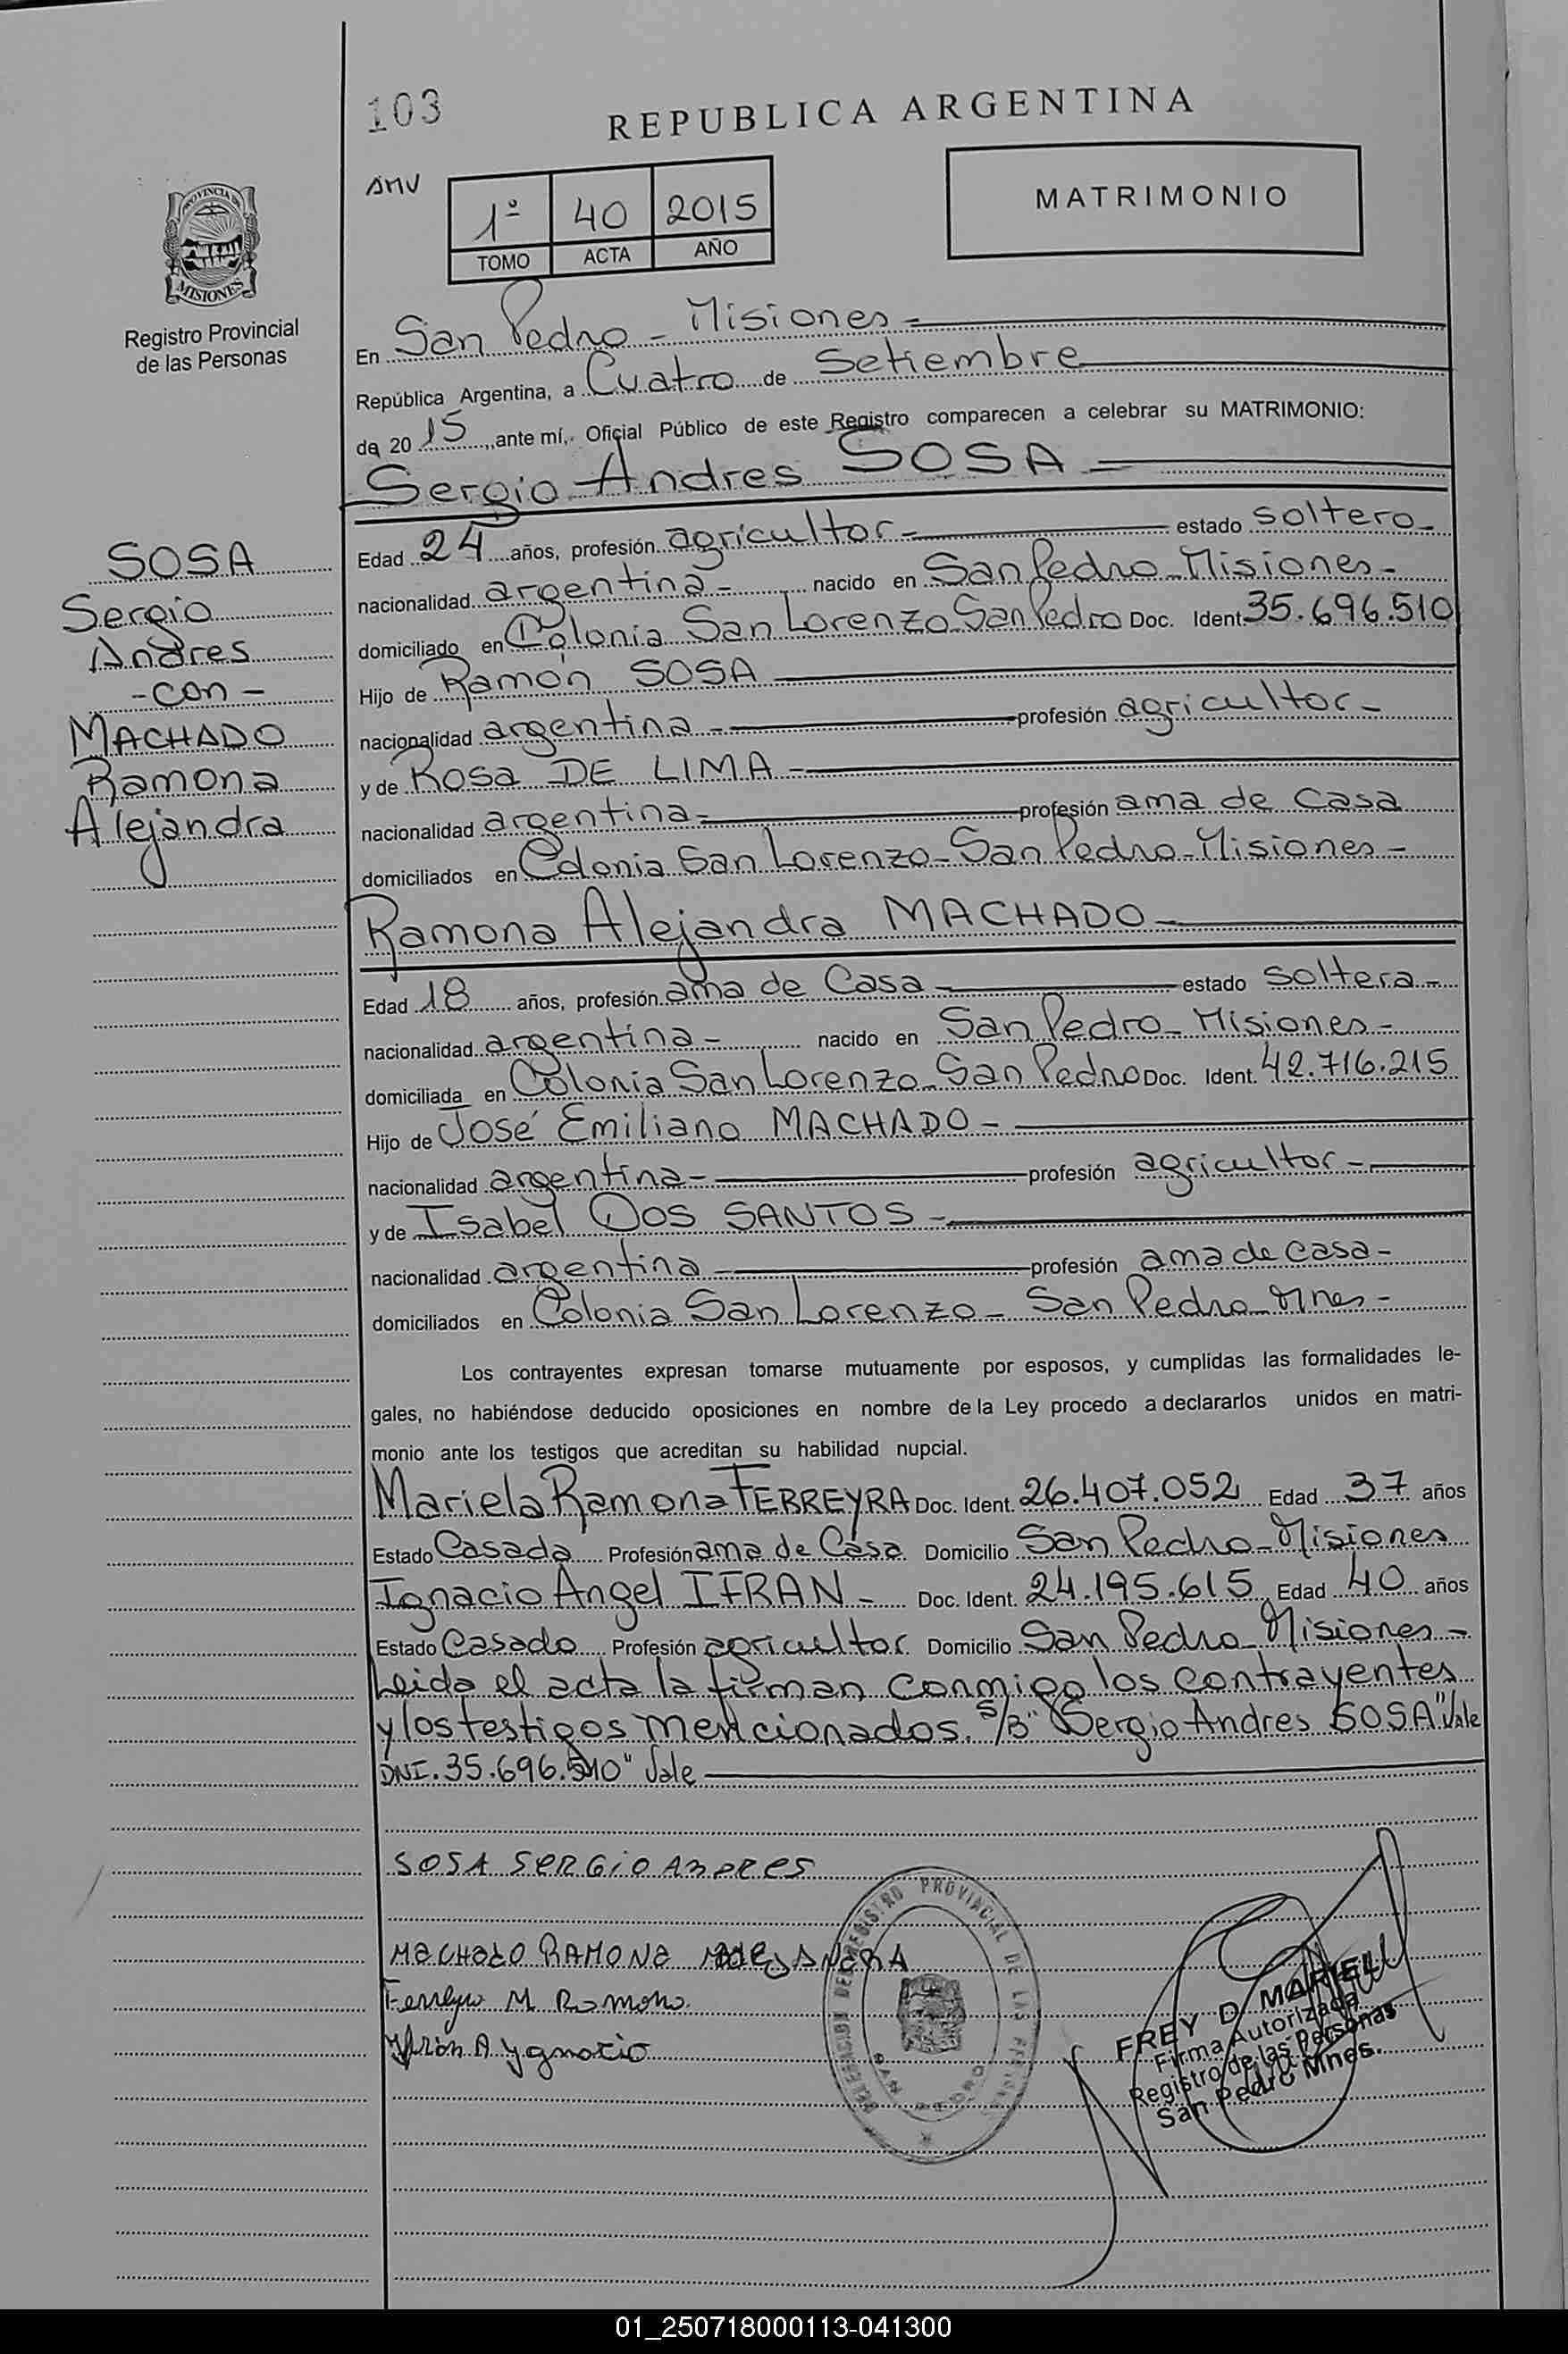 103
REPUBLICA ARGENTINA
AMV
1º 40 2015
TOMO ACTA AÑO
MATRIMONIO
PROVINCIA DE
MISIONES
Registro Provincial
de las Personas
En San Pedro - Misiones -
República Argentina, a Cuatro de Setiembre
de 20 15, ante mí, Oficial Público de este Registro comparecen a celebrar su MATRIMONIO:
Sergio Andres SOSA
SOSA
Sergio
Andres
- con -
MACHADO
Ramona
Alejandra
Edad 24 años, profesión agricultor - estado soltero -
nacionalidad argentina - nacido en San Pedro - Misiones -
domiciliado en Colonia San Lorenzo - San Pedro Doc. Ident. 35.696.510
Hijo de Ramón SOSA
nacionalidad argentina - profesión agricultor -
y de Rosa DE LIMA -
nacionalidad argentina - profesión ama de casa
domiciliados en Colonia San Lorenzo - San Pedro - Misiones -
Ramona Alejandra MACHADO -
Edad 18 años, profesión ama de Casa - estado soltera -
nacionalidad argentina - nacido en San Pedro - Misiones -
domiciliada en Colonia San Lorenzo - San Pedro Doc. Ident. 42.716.215
Hijo de José Emiliano MACHADO -
nacionalidad argentina - profesión agricultor -
y de Isabel DOS SANTOS -
nacionalidad argentina - profesión ama de casa -
domiciliados en Colonia San Lorenzo - San Pedro - Mnes -
Los contrayentes expresan tomarse mutuamente por esposos, y cumplidas las formalidades le-
gales, no habiéndose deducido oposiciones en nombre de la Ley procedo a declararlos unidos en matri-
monio ante los testigos que acreditan su habilidad nupcial.
Mariela Ramona FERREYRA Doc. Ident. 26.407.052 Edad 37 años
Estado Casada Profesión ama de Casa Domicilio San Pedro - Misiones
Ignacio Angel IFRAN - Doc. Ident. 24.195.615 Edad 40 años
Estado Casado Profesión agricultor Domicilio San Pedro - Misiones -
Leida el acta la firman conmigo los contrayentes
y los testigos mencionados. S/B "Sergio Andres SOSA" Vale
DNI. 35.696.510" Vale
SOSA SERGIO ANDRES
MACHADO RAMONA
Ferreyra M Ramona
Ifran A Ygnacio
DELEGACION DEL REGISTRO PROVINCIAL DE LAS PERSONAS
SAN PEDRO
FREY D. MARIEL
Firma Autorizada
Registro de las Personas
San Pedro Mnes.
01_250718000113-041300